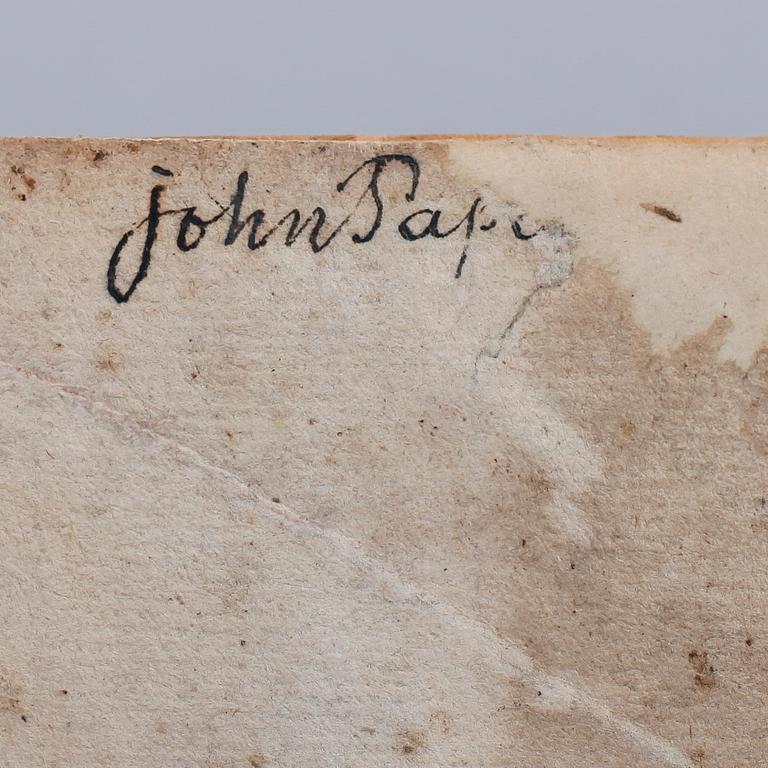 john Pape